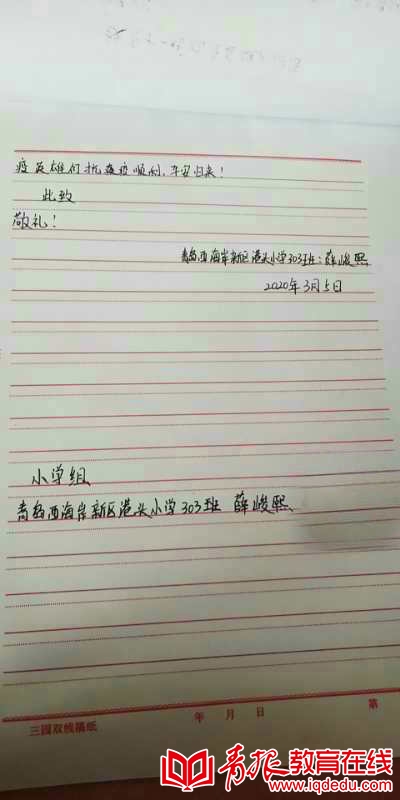 疫英雄们抗疫顺利,平安归来!
此致
敬礼!
青岛西海岸新区港头小学303班:薛峻熙
2020年3月5日
小学组
青岛西海岸新区港头小学303班 薛峻熙
三园双线稿纸 年 月 日 第
青报教育在线
www.iqdedu.com